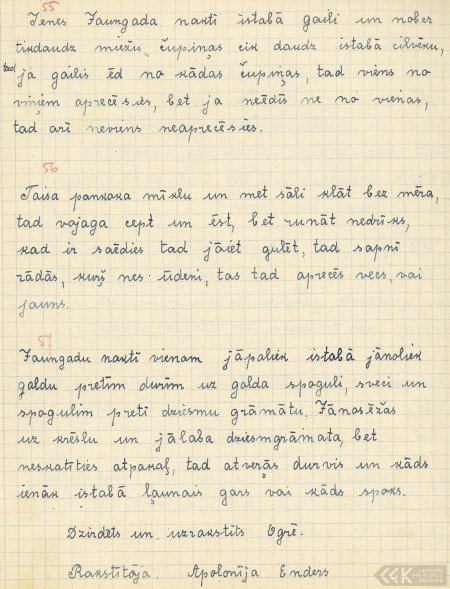 55
Ienes Jaungada naktī istabā gaili un nober
tikdaudz miežu čupiņas cik daudz istabā cilvēku,
tad ja gailis ēd no kādas čupiņas, tad viens no
viņiem aprecēsies, bet ja neēdīs ne no vienas,
tad arī neviens neaprecēsies.
56
Taisa pankoka mīklu un met sāli klāt bez mēra,
tad vajaga cept un ēst, bet runāt nedrīks,
kad ir saēdies tad jāiet gulēt, tad sapnī
rādās, kurš nes ūdeni, tas tad aprecēs vecs, vai
jauns.
57
Jaungadu naktī vienam jāpaliek istabā jānoliek
galdu pretīm durīm uz galda spoguli, sveci un
spogulim pretī dziesmu grāmatu. Jānosēžas
uz krēslu un jālasa dziesmgrāmata, bet
neskatīties atpakaļ, tad atverās durvis un kāds
ienāk istabā ļaunais gars vai kāds spoks.
Dzirdēts un uzrakstīts Ogrē.
Rakstītāja. Apolonija Enders
LATVIEŠU
FOLKLORAS
KRĀTUVE